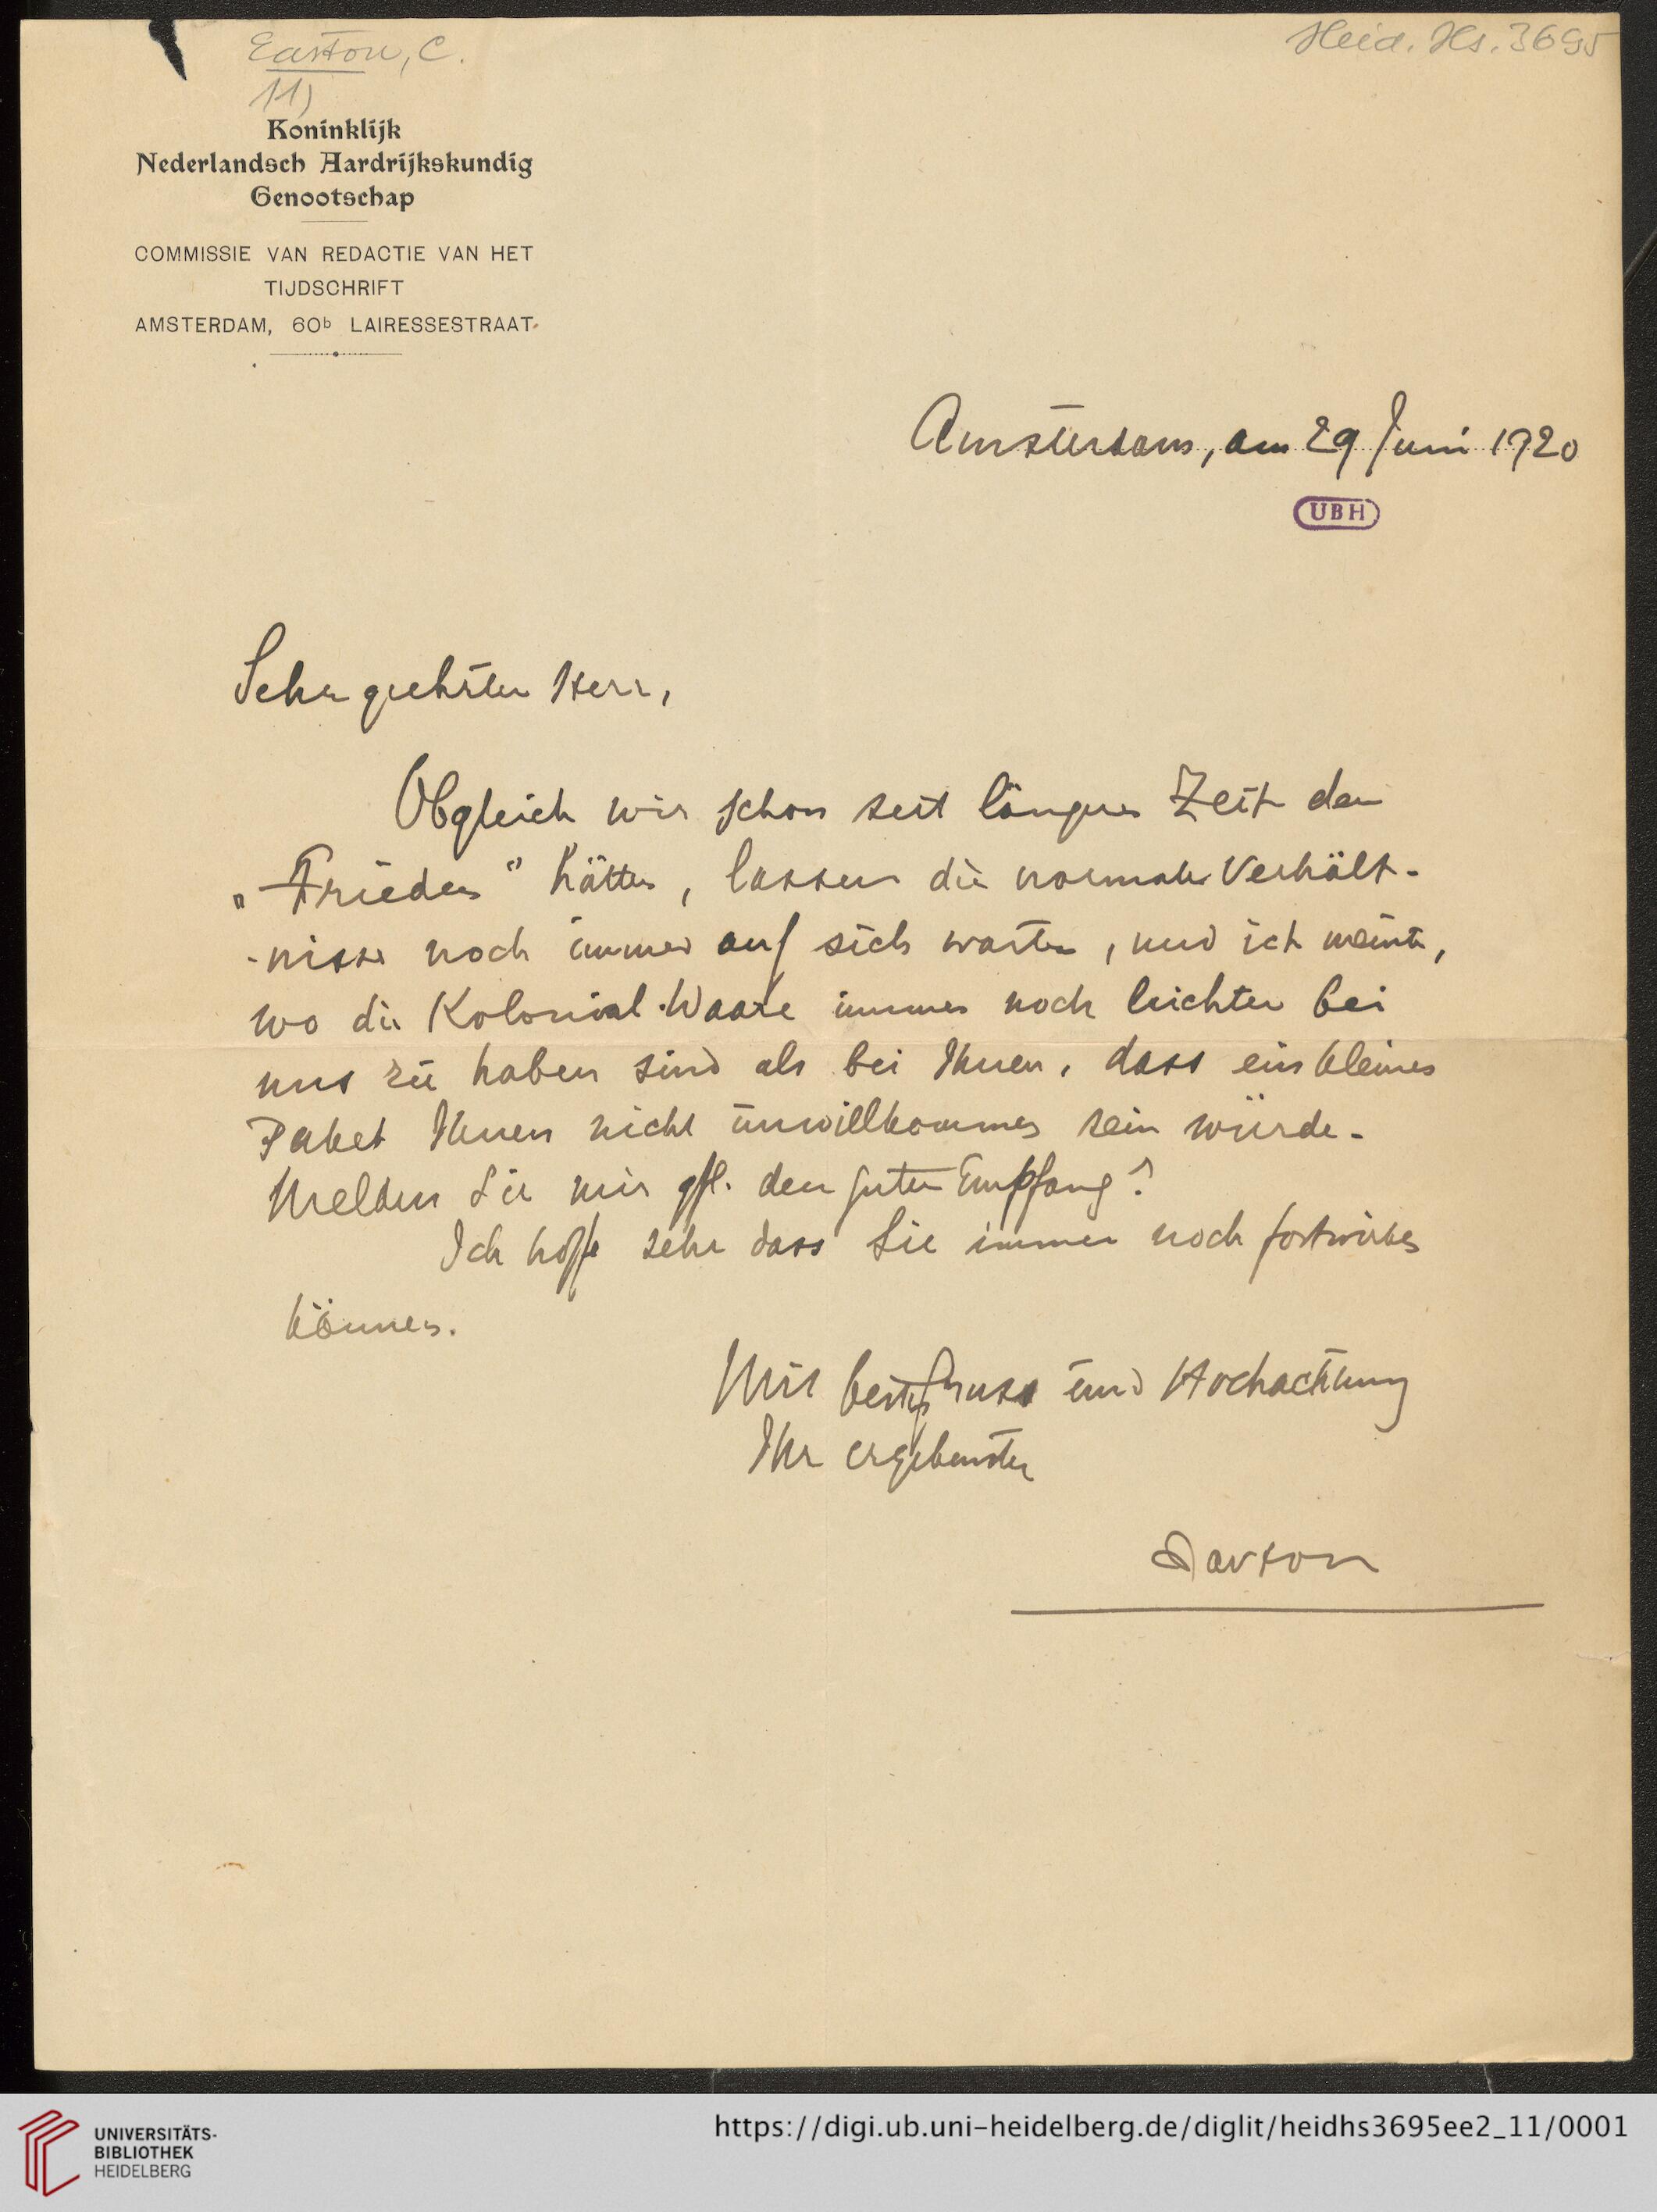 Easton, C.
Heid. Hs. 3695
11)
Koninklijk
Nederlandsch Aardrijkskundig
Genootschap
COMMISSIE VAN REDACTIE VAN HET
TIJDSCHRIFT
AMSTERDAM, 60b LAIRESSESTRAAT.
Amsterdam, am 29 Juni 1920
UBH
Sehr geehrter Herr,
Obgleich wir schon seit länger Zeit den
„Frieden" hätten, lassen die normale Verhält-
-nisse noch immer auf sich warten, und ich meinte,
wo die Kolonial-Waare immer noch leichter bei
uns zu haben sind als bei Ihnen, dass ein kleines
Paket Ihnen nicht unwillkommen sein würde.
Melden Sie mir gfl. den guten Empfang?
Ich hoffe sehr dass Sie immer noch fortwirken
können.
Mit best. Gruss und Hochachtung
Ihr ergebenster
Easton
UNIVERSITÄTS-
BIBLIOTHEK
HEIDELBERG
https://digi.ub.uni-heidelberg.de/diglit/heidhs3695ee2_11/0001